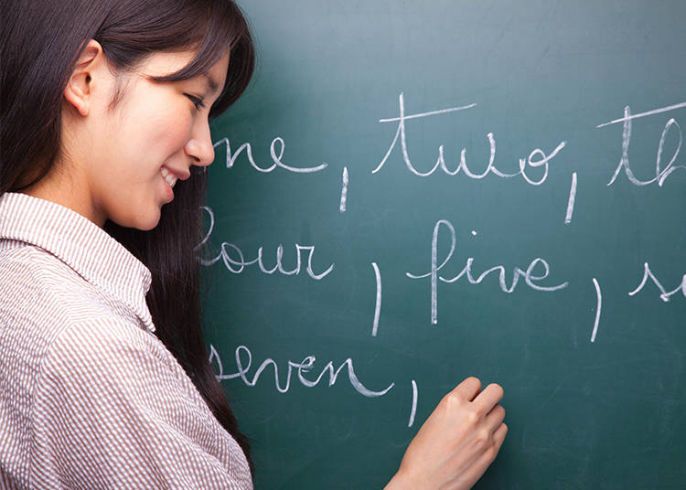 ne, two, th
four, five, s
seven,